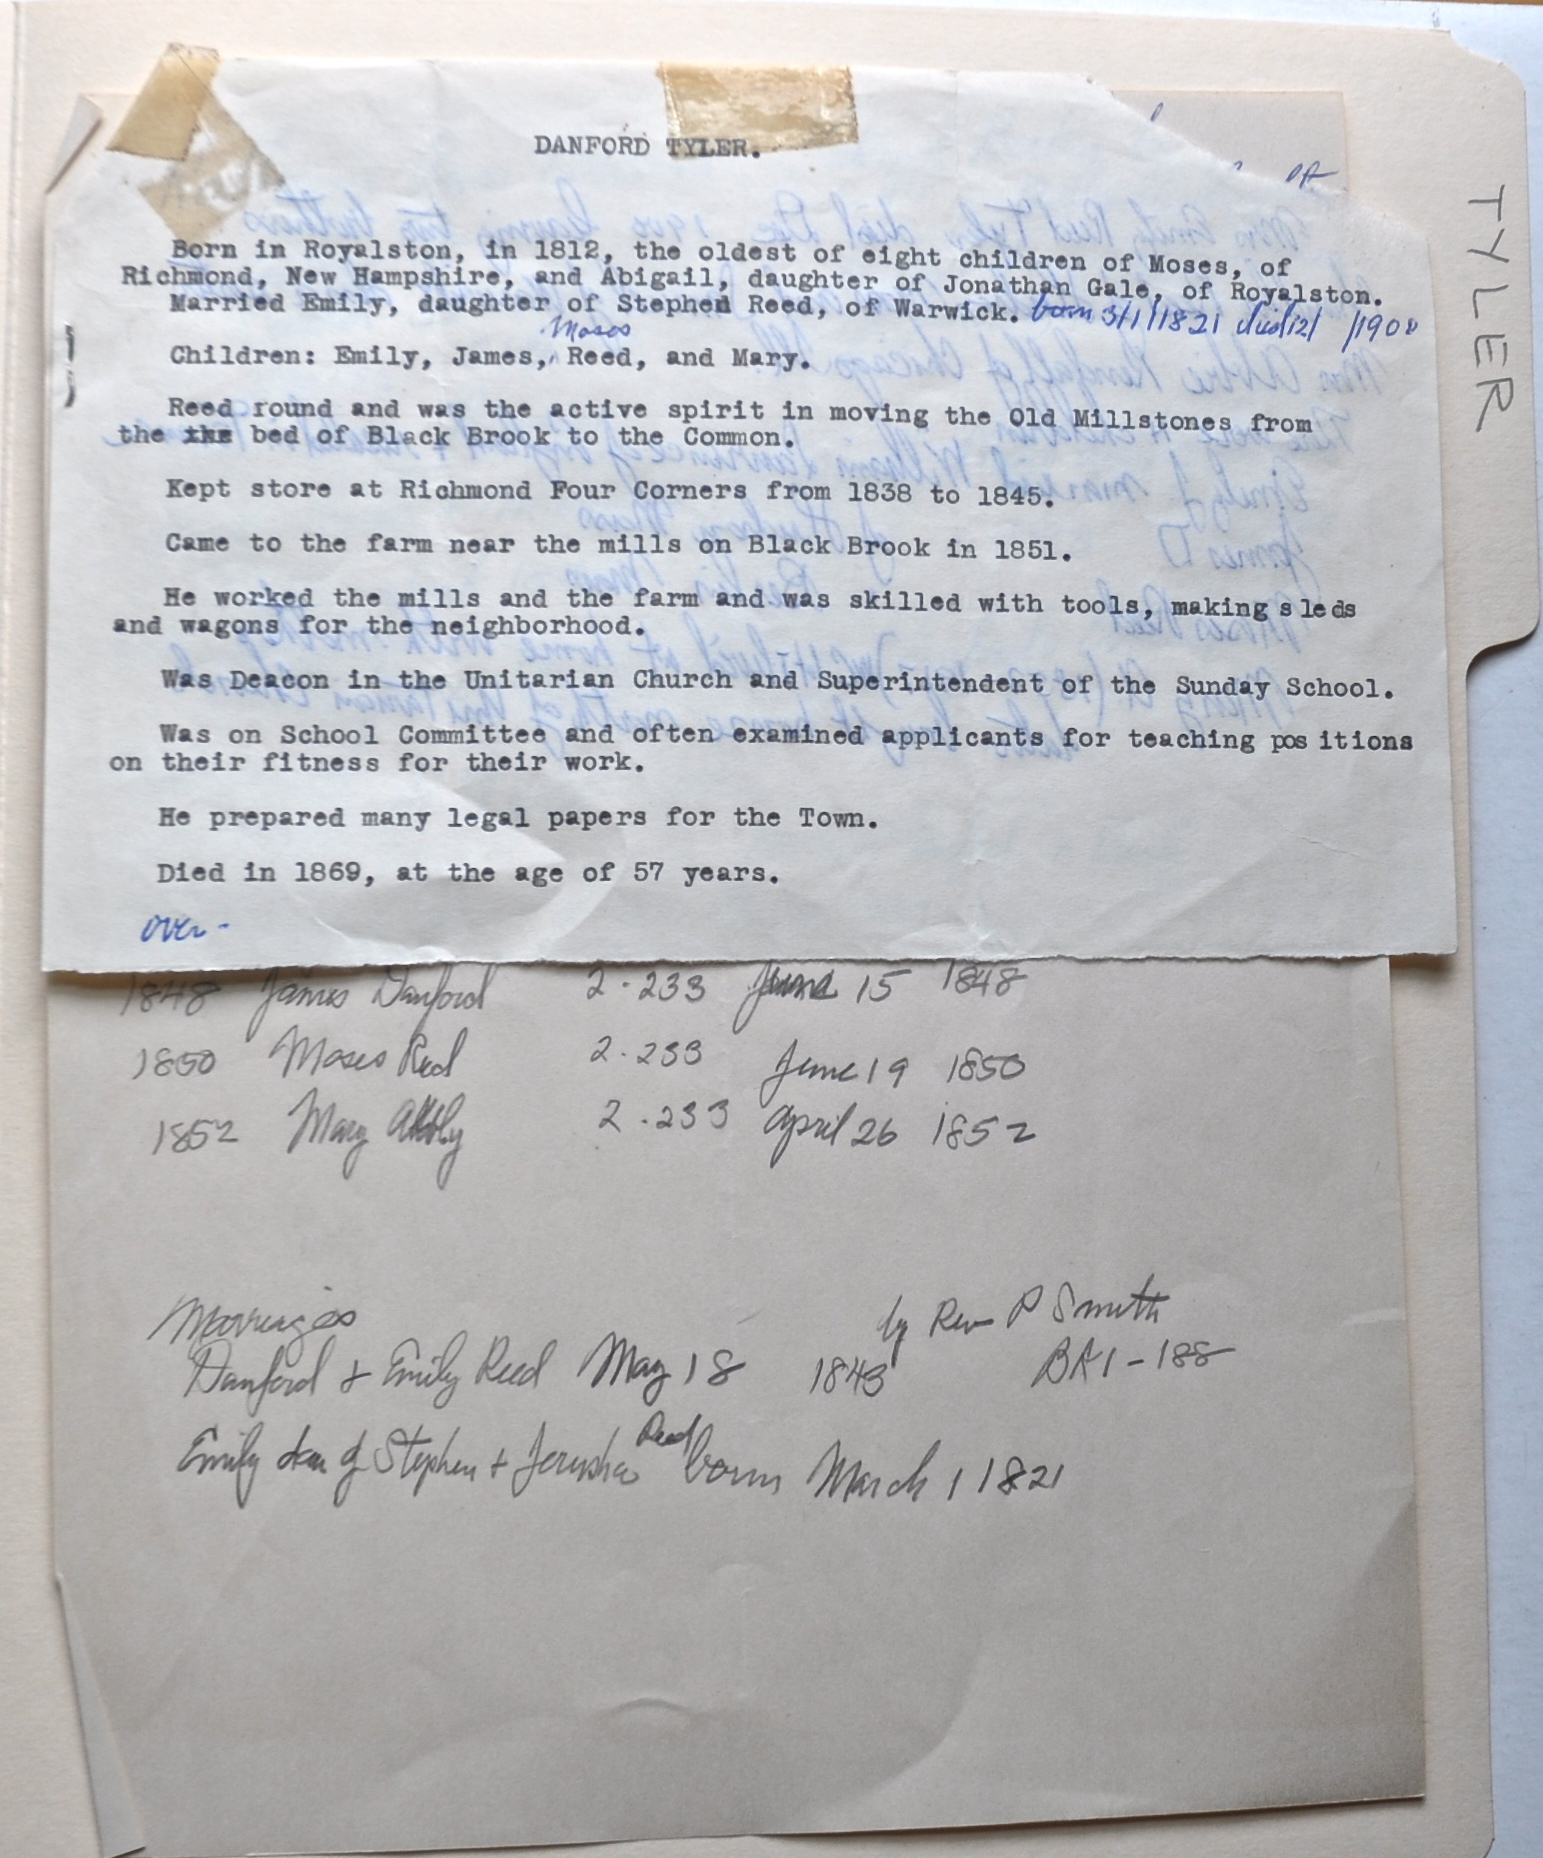 TYLER
DANFORD TYLER.
Born in Royalston, in 1812, the oldest of eight children of Moses, of
Richmond, New Hampshire, and Abigail, daughter of Jonathan Gale, of Royalston.
Married Emily, daughter of Stephen Reed, of Warwick. born 3/1/1821 died 12/ /1900
Moses
Children: Emily, James, ^ Reed, and Mary.
Reed round and was the active spirit in moving the Old Millstones from
the the bed of Black Brook to the Common.
Kept store at Richmond Four Corners from 1838 to 1845.
Came to the farm near the mills on Black Brook in 1851.
He worked the mills and the farm and was skilled with tools, making sleds
and wagons for the neighborhood.
Was Deacon in the Unitarian Church and Superintendent of the Sunday School.
Was on School Committee and often examined applicants for teaching positions
on their fitness for their work.
He prepared many legal papers for the Town.
Died in 1869, at the age of 57 years.
over -
1848 James Danford 2.233 June 15 1848
1850 Moses Reed 2.233 June 19 1850
1852 Mary 2.233 April 26 1852
Marriages
by Rev P Smith
Danford + Emily Reed May 18 1843 BK1-188
Emily dau of Stephen + Jerusha Reed born March 1 1821